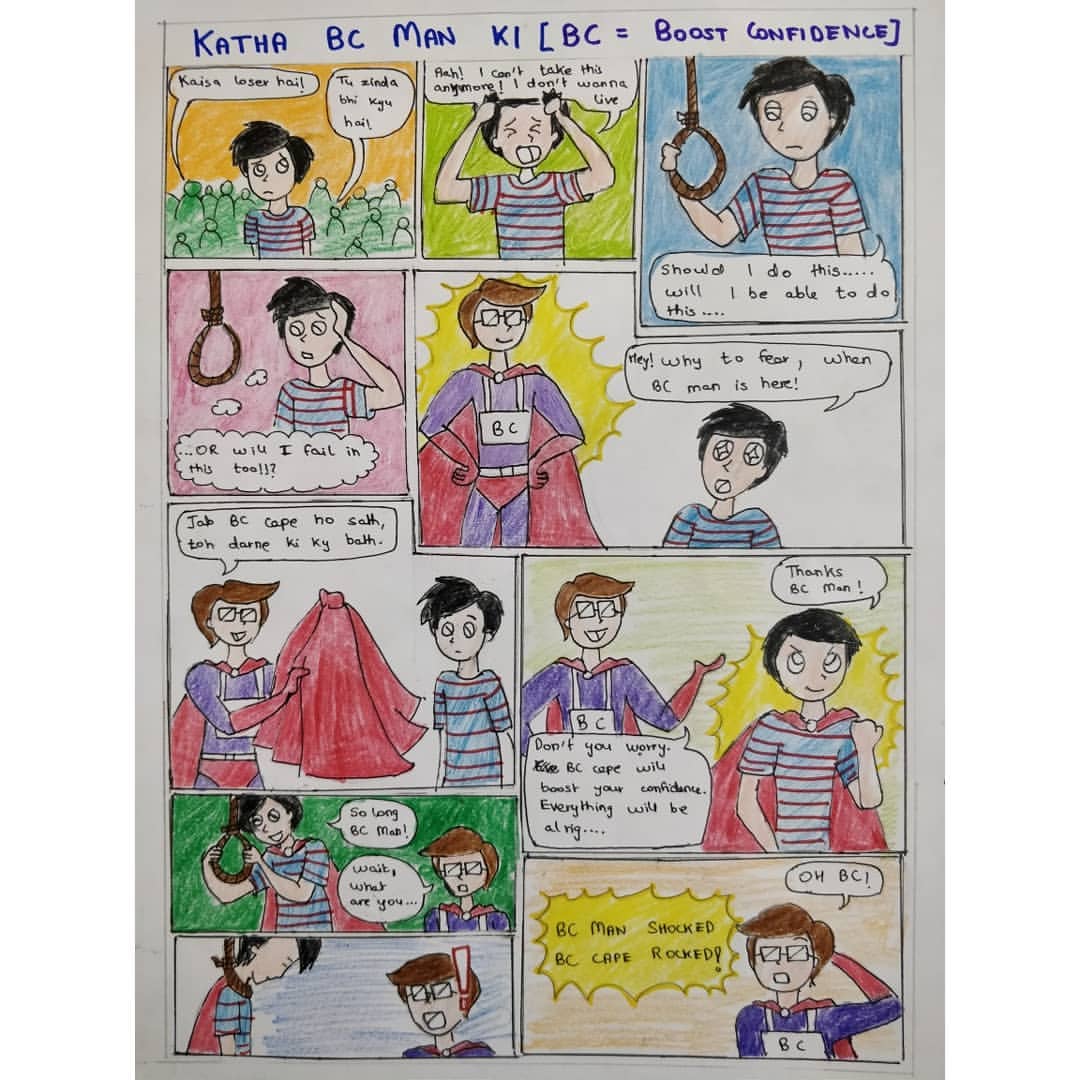 KATHA BC MAN KI [BC = BOOST CONFIDENCE]
Kaisa loser hai!
Tu zinda
bhi kyu
hai!
Aah! I can't take this
anymore! I don't wanna
live
Should I do this.....
will I be able to do
this....
...OR will I fail in
this too!!?
Hey! Why to fear, when
BC man is here!
BC
Jab BC cape ho sath,
toh darne ki ky bath.
Thanks
BC Man!
BC
Don't you worry.
BC cape will
boost your confidence.
Everything will be
alrig....
So long
BC Man!
Wait,
what
are you...
!
OH BC!
BC MAN SHOCKED
BC CAPE ROCKED!
BC